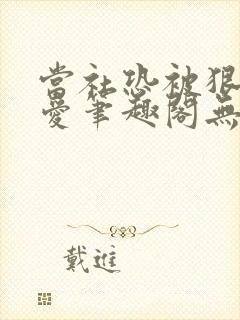 當社恐被狠
愛筆趣閣無
戴進